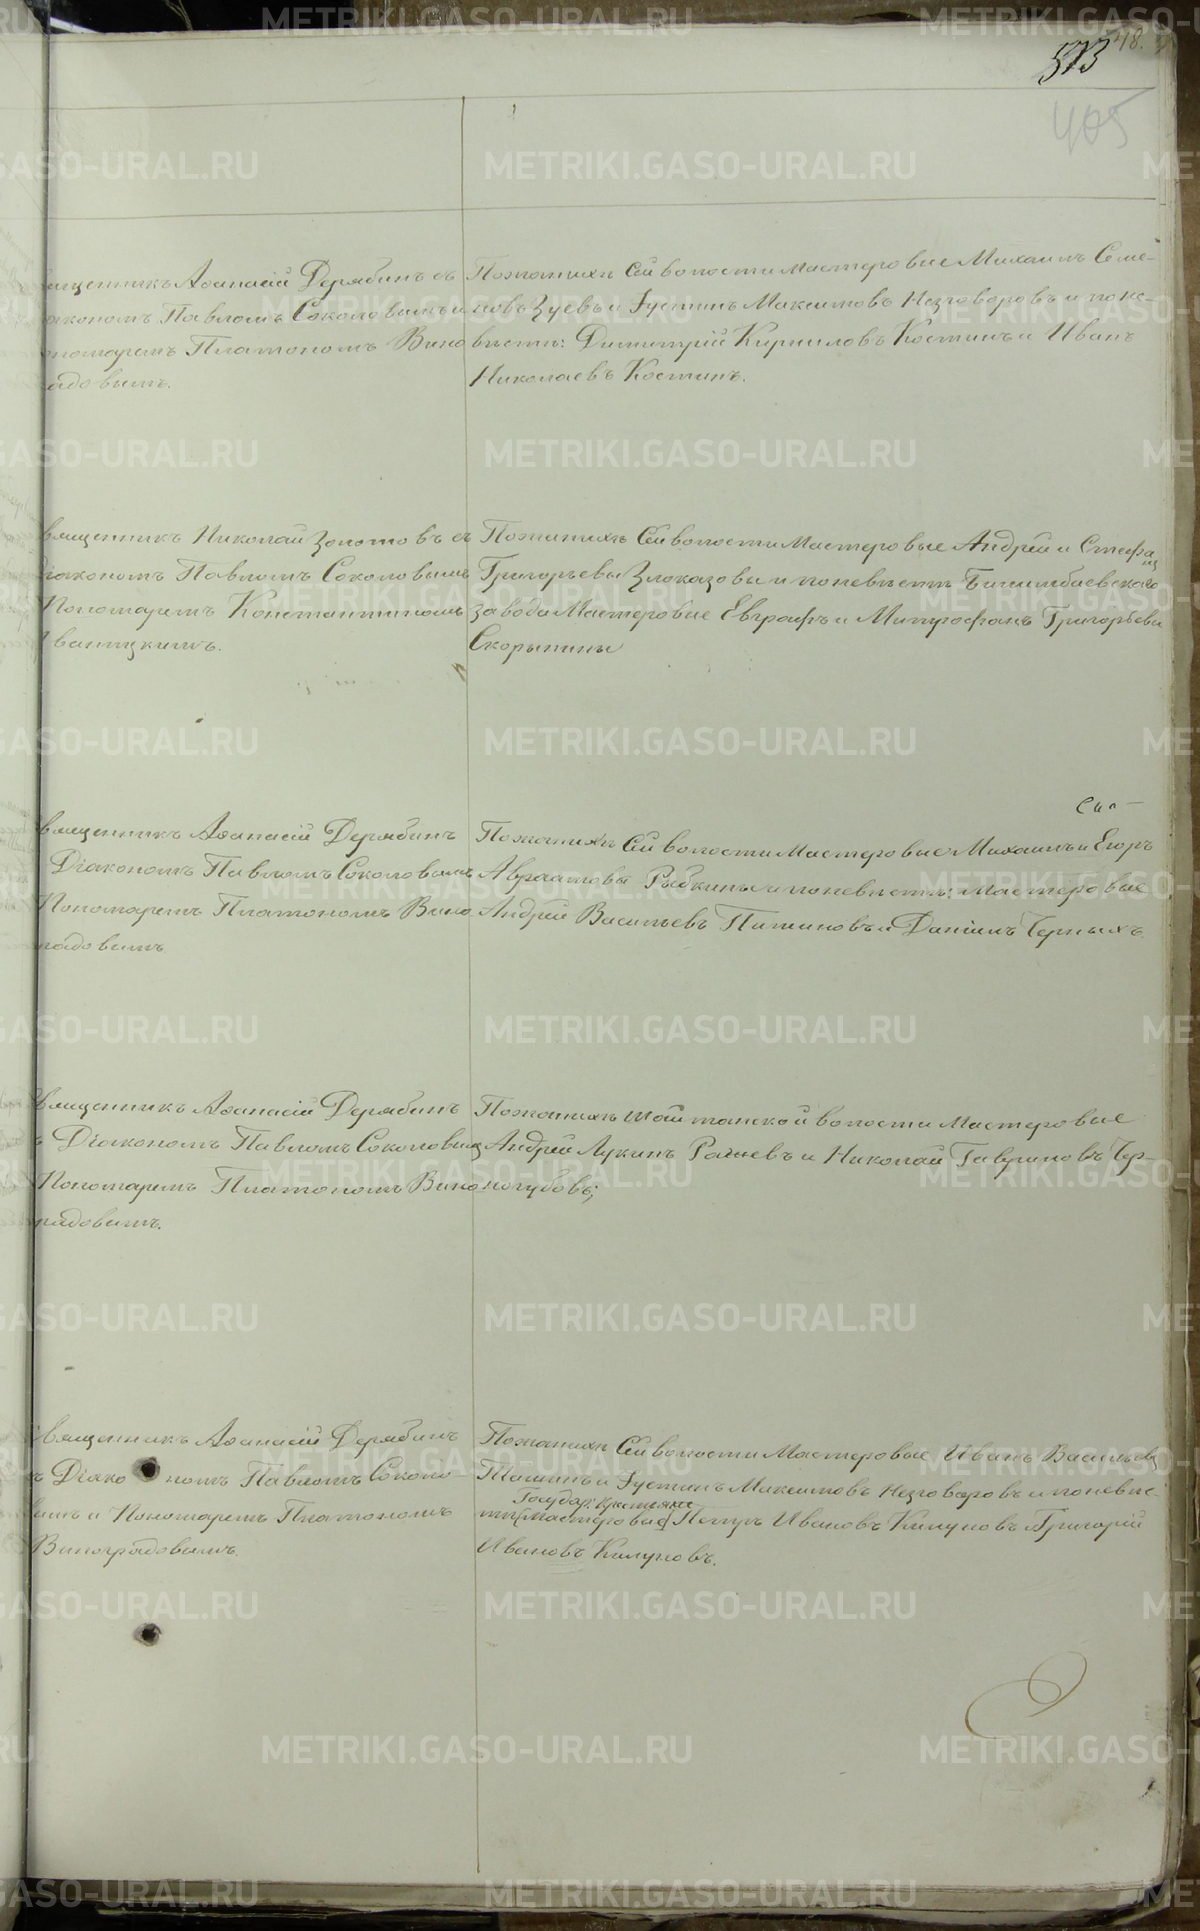 573
405
священникъ Аѳанасій Дерябинъ съ
діакономъ Павломъ Соколовымъ и
пономаремъ Платономъ Вино
градовымъ.
По женихѣ Сей волости мастеровые Михаилъ Семе-
новъ Зуевъ и Іустинъ Максимовъ Незговоровъ и по не-
вѣстѣ: Димитрій Кириловъ Костинъ и Иванъ
Николаевъ Костинъ.
священникъ Николай Золотовъ съ
діакономъ Павломъ Соколовымъ
Пономаремъ Константиномъ
По женихѣ Сей волости Мастеровые Андрей и Стефанъ
Григорьевы Злоказовы и по невѣстѣ Билимбаевскаго
завода Мастеровые Евграфъ и Митрофанъ Григорьевы
Скорынины
священникъ Аѳанасій Дерябинъ
Діакономъ Павломъ Соколовымъ
Пономаремъ Платономъ Вино
градовымъ.
По женихѣ Сей волости Мастеровые Михаилъ и Егоръ
Авраамовы Рыбкины и по невѣстѣ: мастеровые
Андрей Васильевъ Пашиновъ и Даніилъ Черныхъ.
священникъ Аѳанасій Дерябинъ
съ Діакономъ Павломъ Соколовымъ
Пономаремъ Платономъ Вино
градовымъ.
По женихѣ Шайтанской волости Мастеровые
Андрей Лукинъ Рачевъ и Николай Гавриловъ Чер-
ногубовъ;
священникъ Аѳанасій Дерябинъ
съ Діакономъ Павломъ Соколо-
вымъ и Пономаремъ Платономъ
Виноградовымъ.
По женихѣ Сей волости Мастеровые Иванъ Васильевъ
Іустинъ Максимовъ Незговоровъ и по невѣс-
Государ. Крестьяне
тѣ (Мастеровые) Петръ Ивановъ Килуновъ Григорій
Ивановъ Килуновъ.